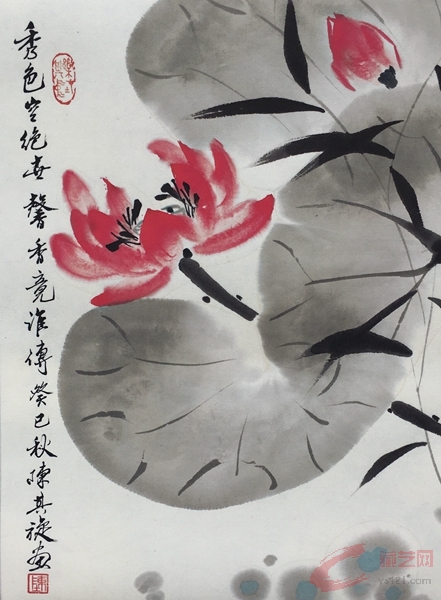 秀色空绝世馨香竟谁传癸巳秋陈其旋画
藏艺网